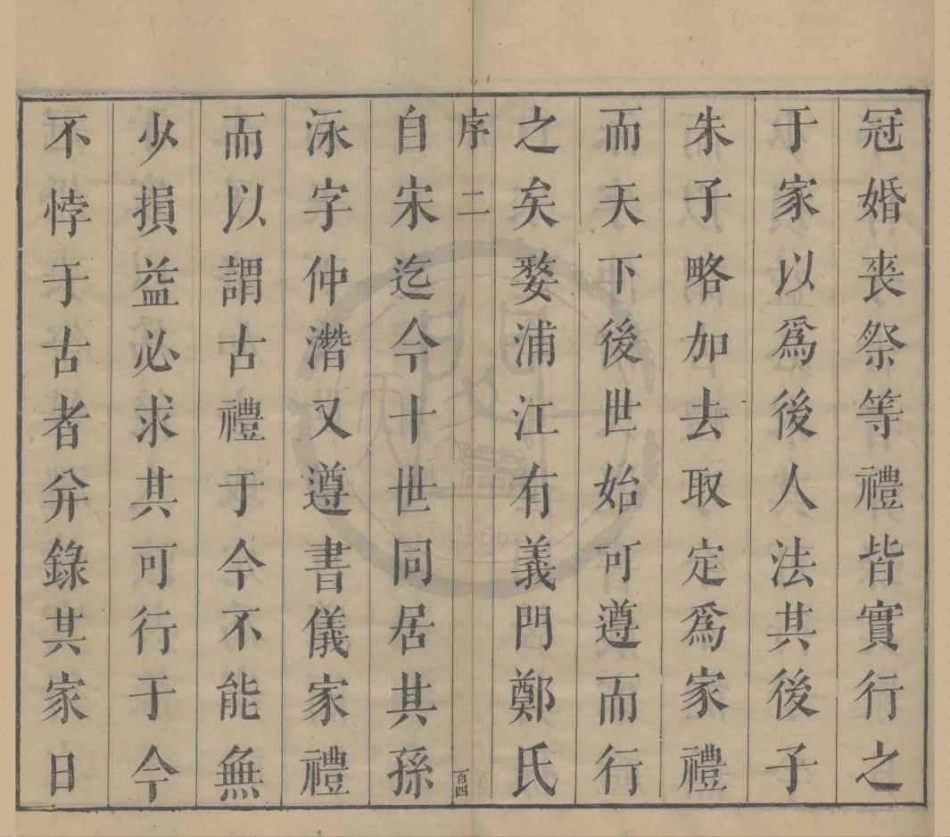 冠婚喪祭等禮皆實行之
于家以爲後人法其後子
朱子略加去取定爲家禮
而天下後世始可遵而行
之矣婺浦江有義門鄭氏
序 二
百四
自宋迄今十世同居其孫
泳字仲潛又遵書儀家禮
而以謂古禮于今不能無
少損益必求其可行于今
不悖于古者并錄其家日